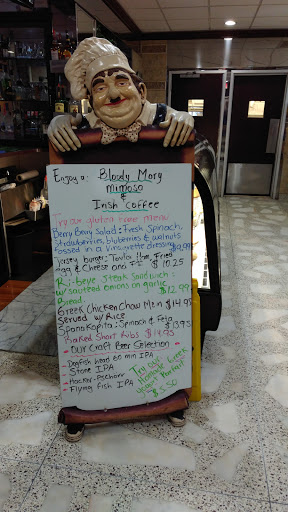 Enjoy a: Bloody Mary
mimosa
&
Irish Coffee
Try our gluten free menu
Berry Berry Salad: Fresh Spinach,
Strawberries, bluberries & walnuts
tossed in a vinaigrette dressing
Jersey burger: Taylor Ham, Fried
egg & Cheese and FF $ 10.25
Rib-eye Steak Sandwich:
w/ sauteed onions on garlic
Bread $12.99
Greek Chicken Chow Mein $14.95
Served w/ Rice
Spanakopita: Spinach & Feta
$13.95
Baked Short Ribs $14.95
- Our Craft Beer Selection
- Dogfish head 60 min IPA
- Stone IPA
- Hacker-Pschorr
- Flying fish IPA
Try our
Homemade Greek
Yogurt Parfait
$5.50